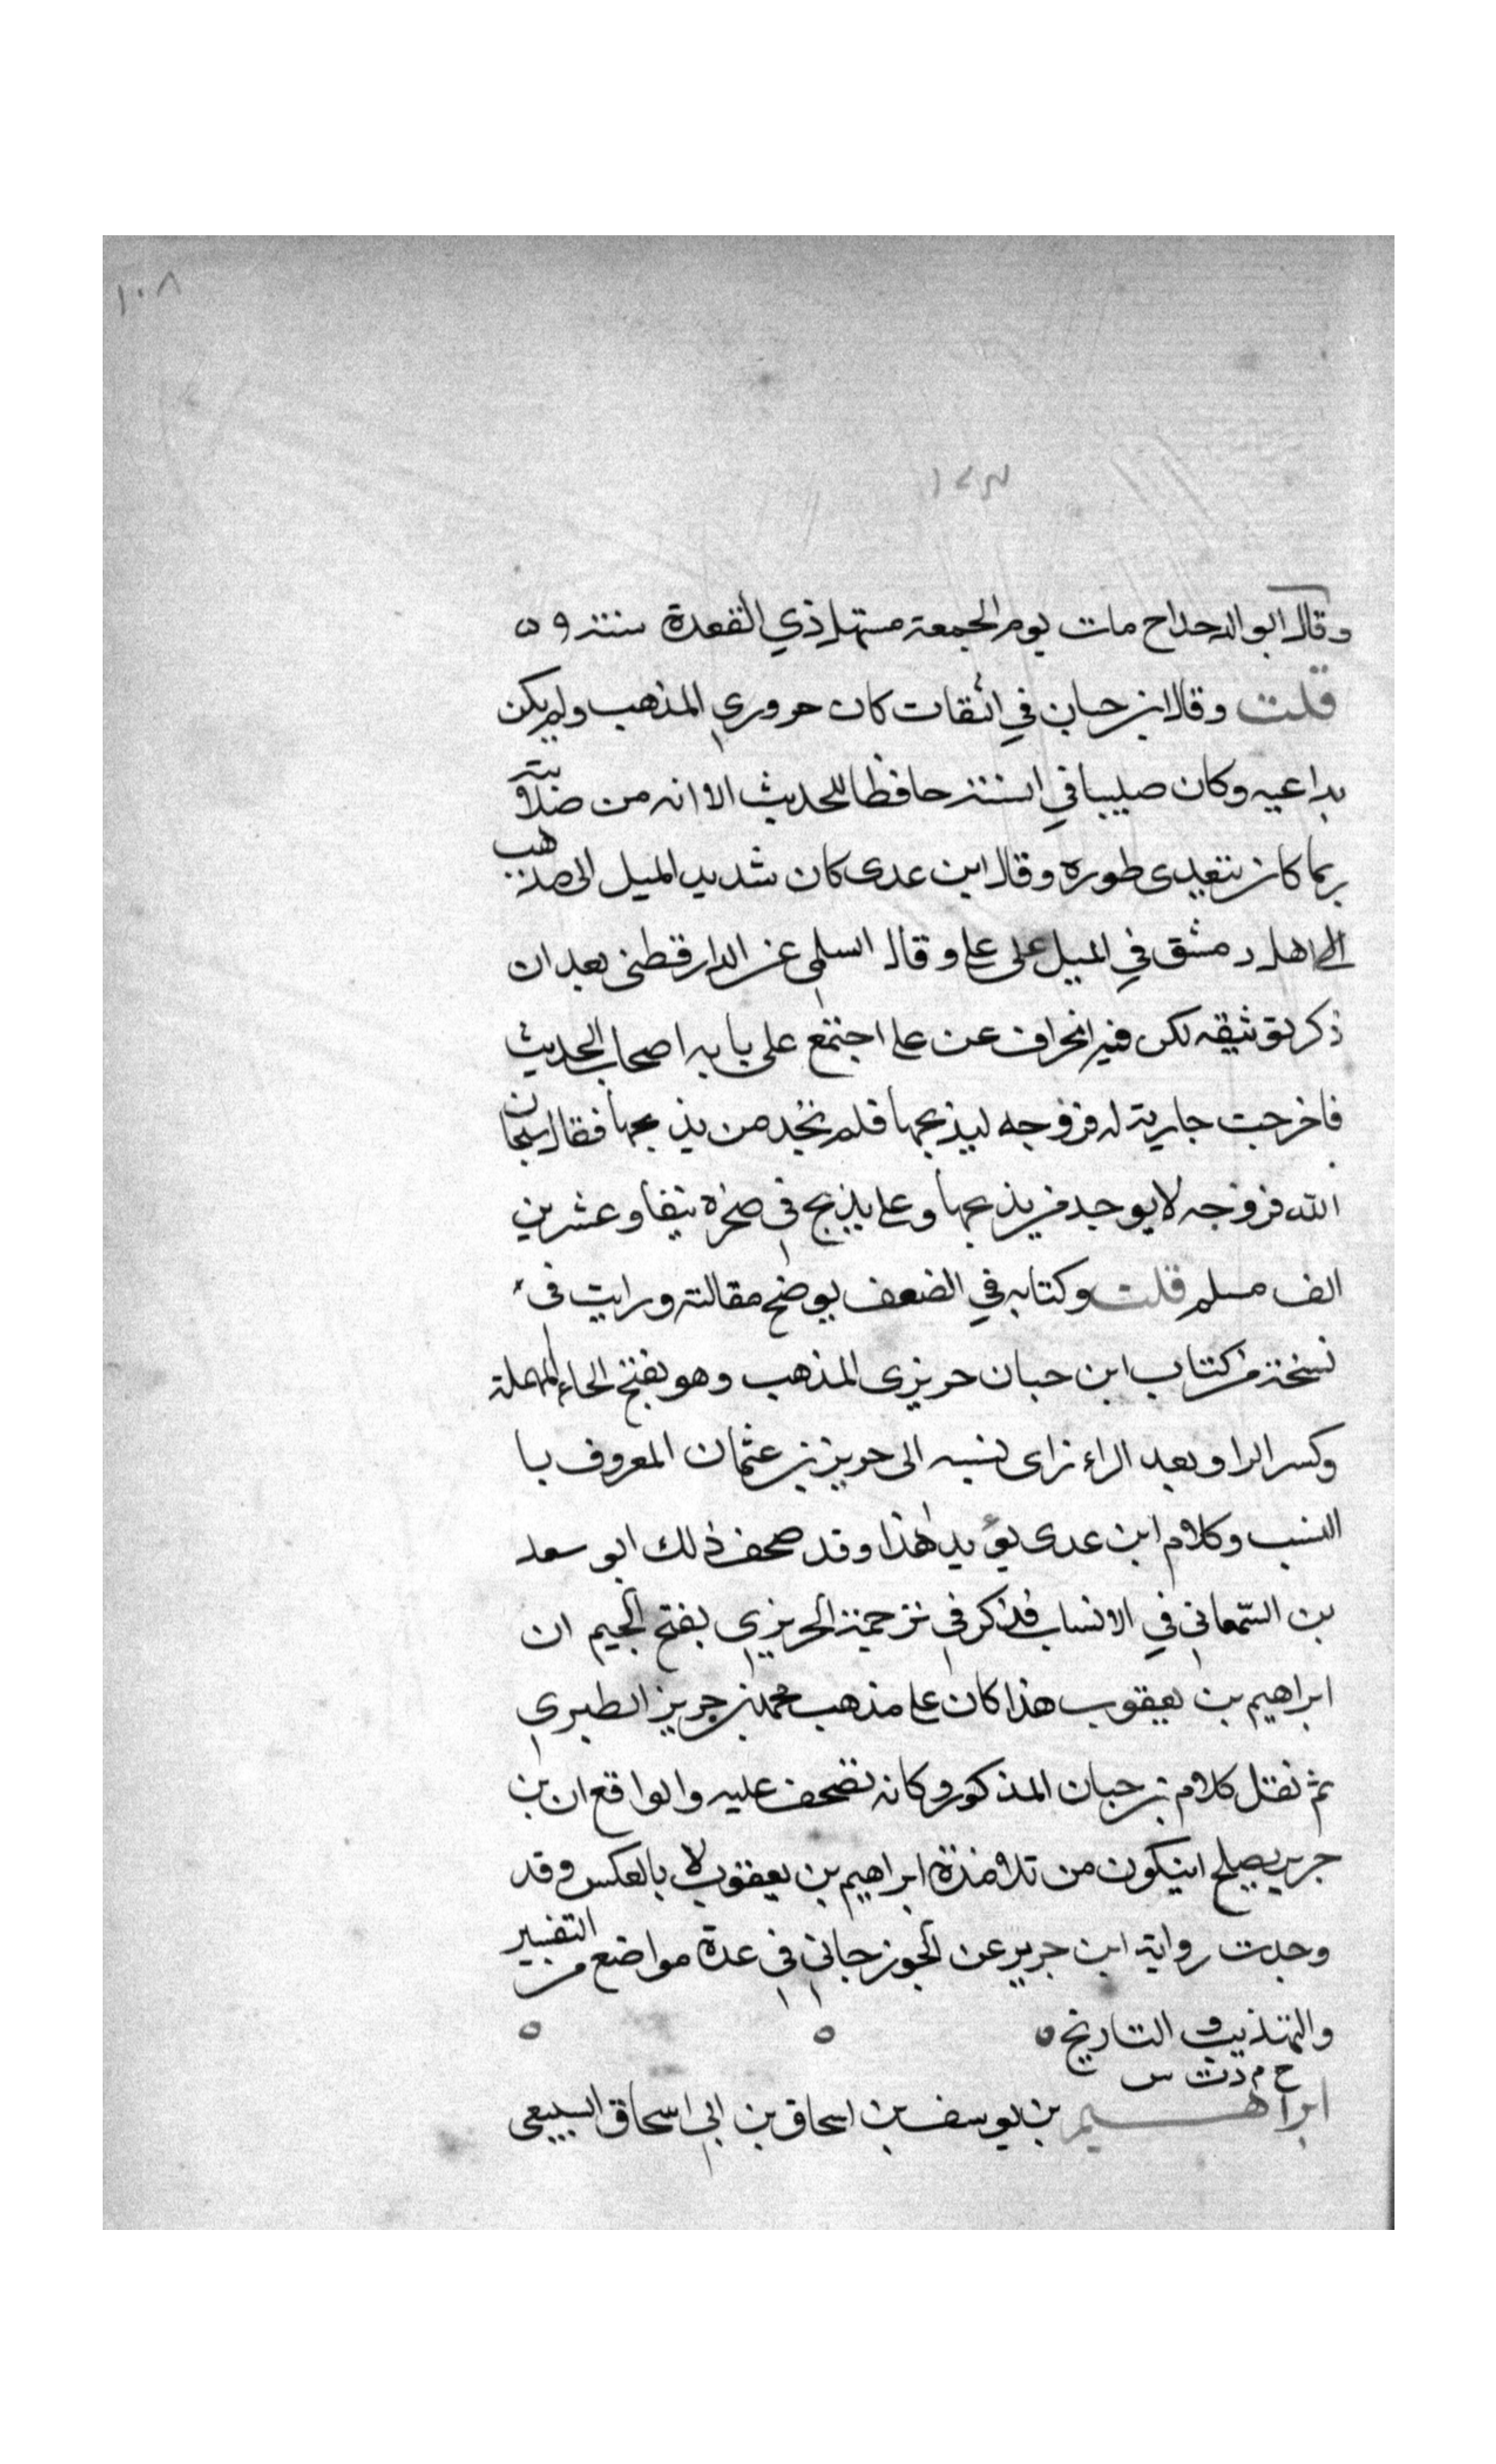 ١٠٨
١٢٣
وقال ابو الدحداح مات يوم الجمعة مستهل ذي القعدة سنة ٥٩
قلت وقال ابن حبان في الثقات كان حروري المذهب ولم يكن
بداعيه وكان صليبا في السنة حافظا للحديث الا انه من صلابته
ربما كان يتعدى طوره وقال ابن عدى كان شديد الميل الى مذهب
اهل دمشق في الميل على على وقال السلمى عن الدارقطنى بعد ان
ذكر توثيقه لكن فيه انحراف عن على اجتمع على بابه اصحاب الحديث
فاخرجت جارية له فروجه ليذبحها فلم تجد من يذبحها فقال سبحان
الله فروجه لا يوجد من يذبحها وعلى يذبح في صخرة نيفا وعشرين
الف مسلم قلت وكتابه في الضعف يوضح مقالته ورايت فى
نسخة من كتاب ابن حبان حريزى المذهب وهو بفتح الحاء المهملة
وكسر الرا وبعد الراء زاى نسبه الى حريز بن عثمان المعروف با
النسب وكلام ابن عدى يؤيد هذا وقد صحف ذلك ابو سعد
بن السمعاني في الانساب فذكر في ترجمة الجريري بفتح الجيم ان
ابراهيم بن يعقوب هذا كان على مذهب محمد بن جرير الطبري
ثم نقل كلام بن حبان المذكور وكانه تصحف عليه والواقع ان بن
جرير يصلح ان يكون من تلامذة ابراهيم بن يعقوب لا بالعكس وقد
وجدت رواية ابن جرير عن الجوزجاني في عدة مواضع من التفسير
والتهذيب و التاريخ ه ه ه
خ م د ت س
ابراهيم بن يوسف بن اسحاق بن ابي اسحاق السبيعى